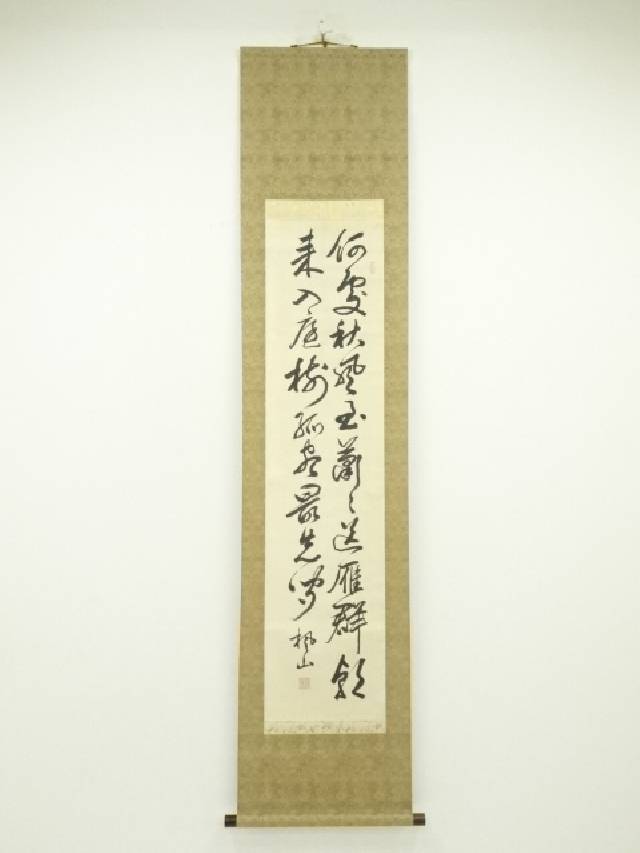 何處秋風至蕭々送雁群朝
来入庭樹孤客最先聞 楓山